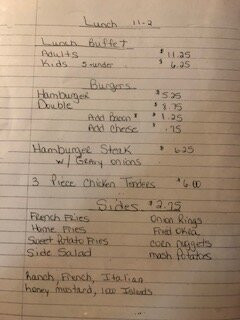 Lunch 11-2
Lunch Buffet
Adults $11.25
Kids 5-under $6.25
Burgers
Hamburger $5.25
Double $8.75
Add Bacon $1.25
Add cheese .75
Hamburger Steak $6.25
w/ Gravy onions
3 Piece Chicken Tenders $6.00
Sides $2.75
French Fries Onion Rings
Home Fries Fried Okra
Sweet Potato Fries corn nuggets
Side Salad mash Potatoes
Ranch, French, Italian
honey mustard, 1000 Islands